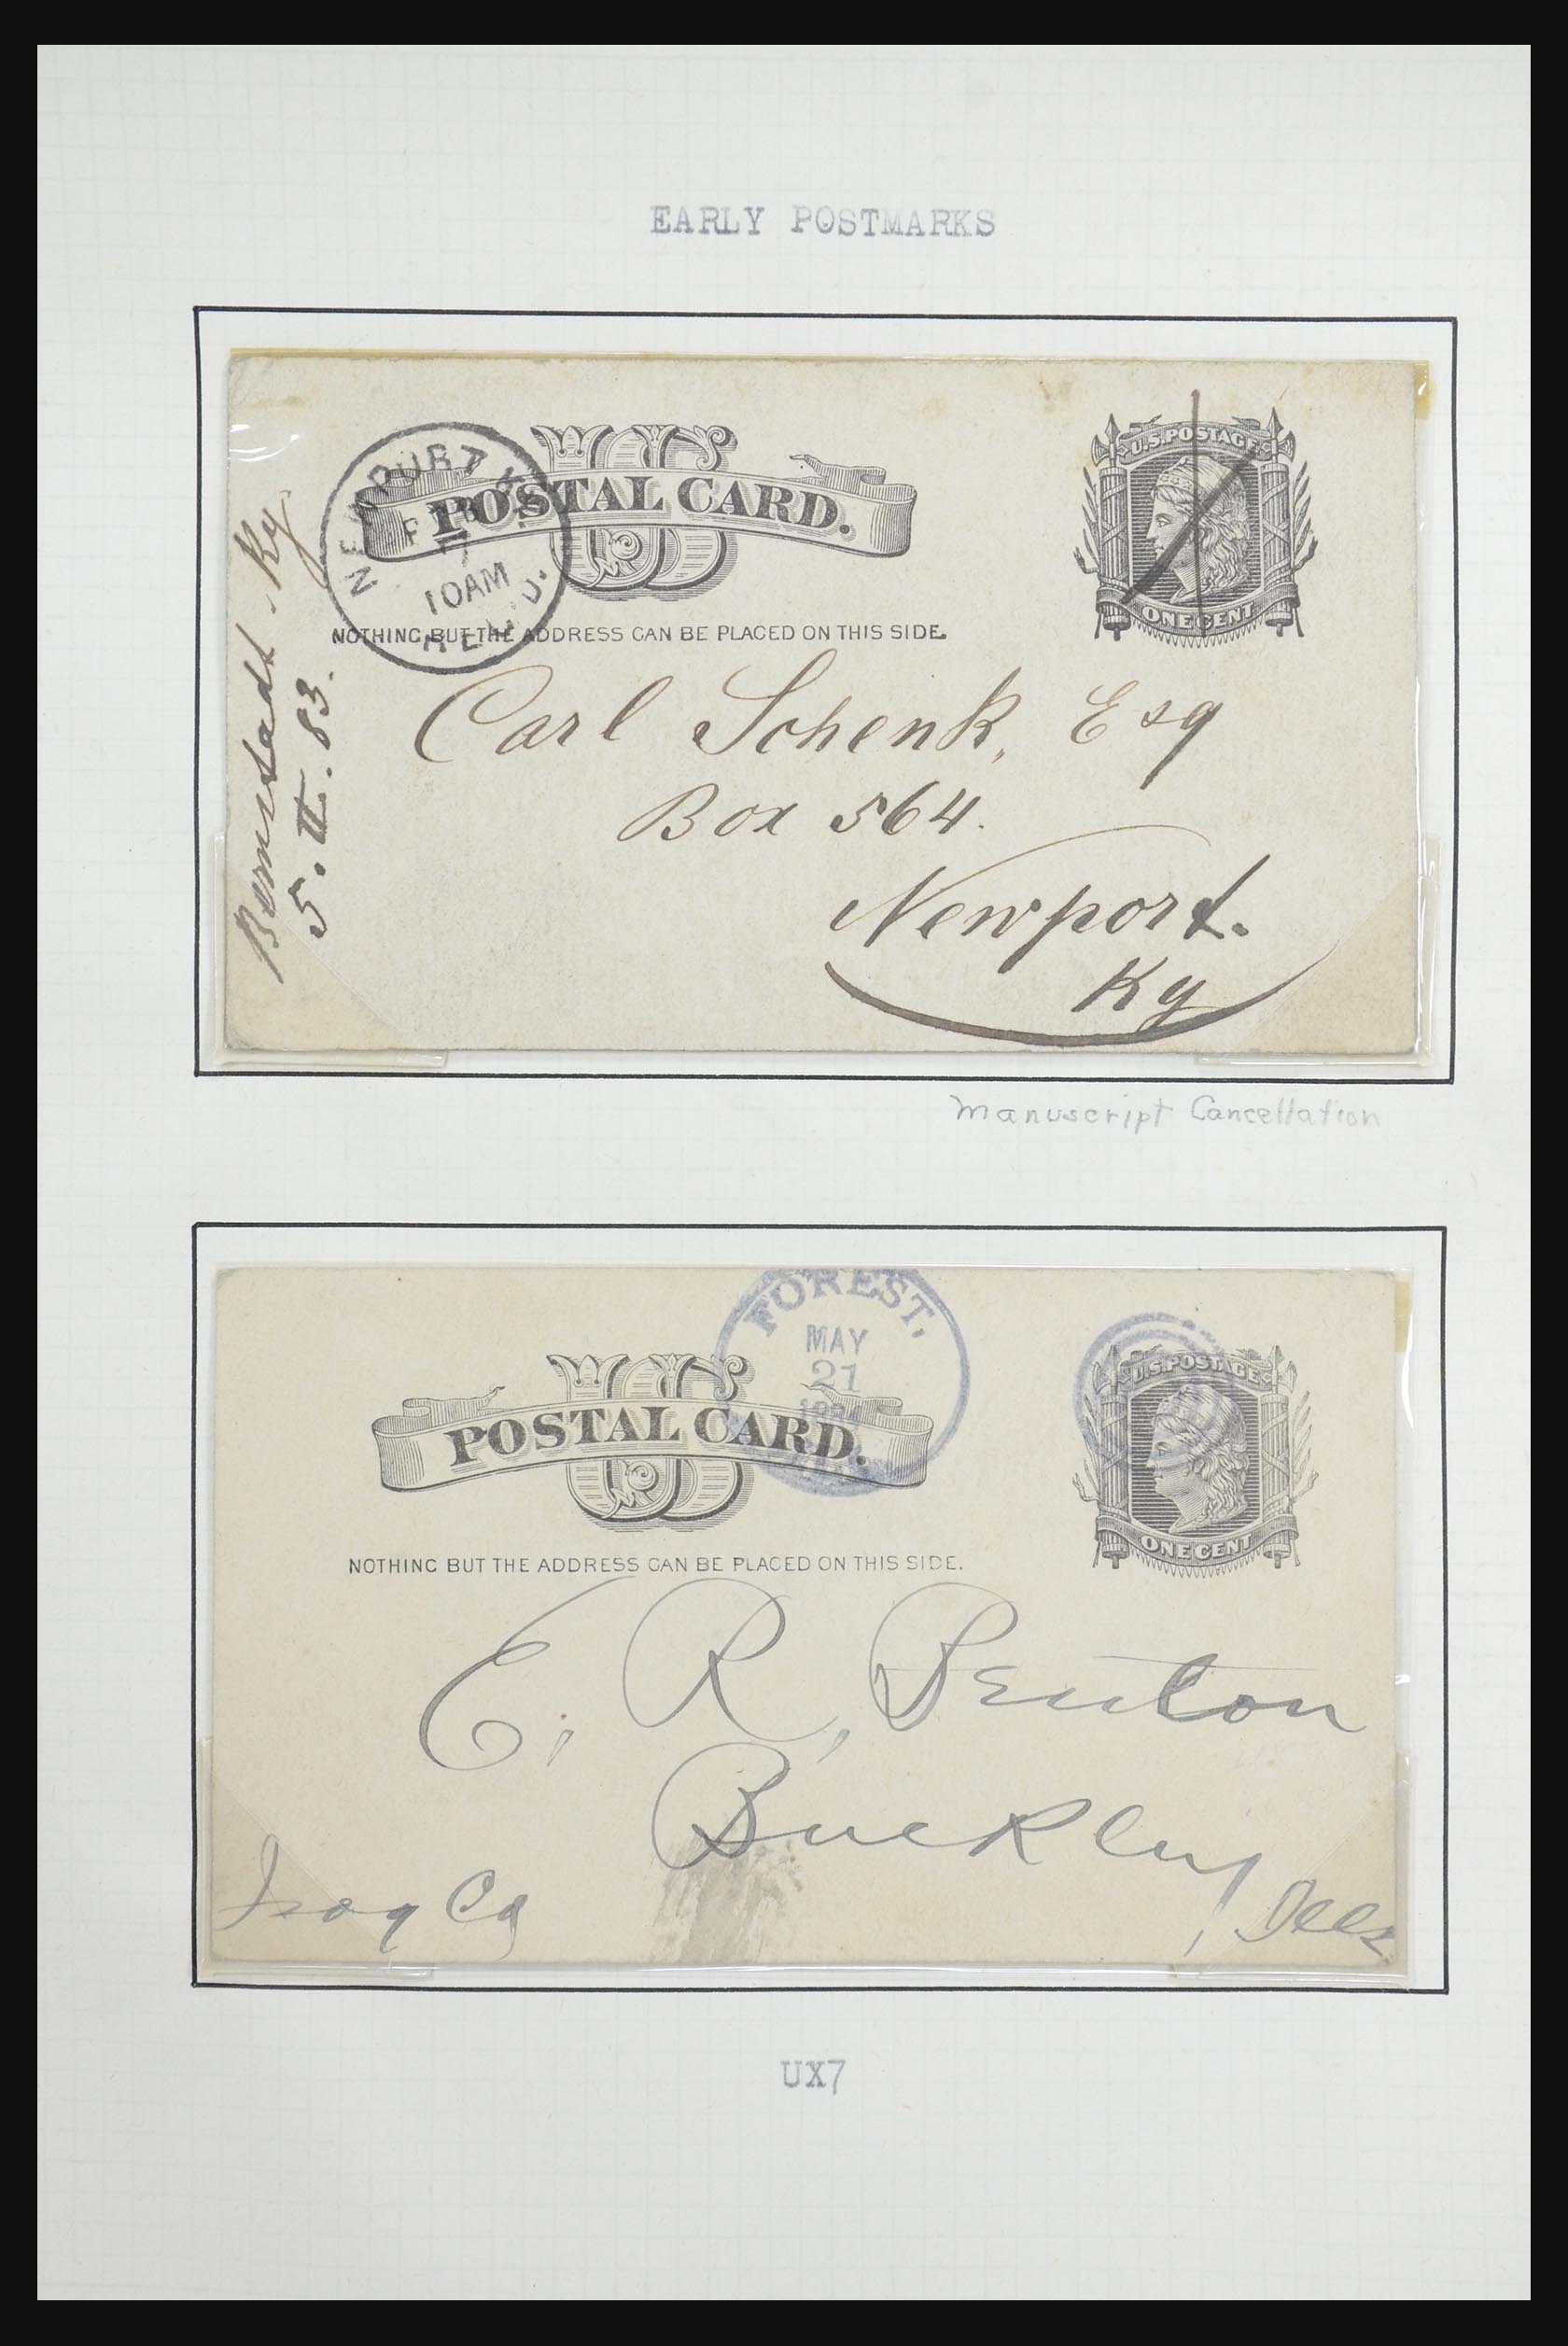 EARLY POSTMARKS
NEWPORT KY.
FEB
7
10AM
REC'D.
US
POSTAL CARD.
U.S. POSTAGE
ONE CENT
NOTHING BUT THE ADDRESS CAN BE PLACED ON THIS SIDE.
Bernstadt Ky
5. II. 83.
Carl Schenk, Esq
Box 564.
Newport.
Ky
Manuscript Cancellation
FOREST,
MAY
21
1884
US
POSTAL CARD.
U.S. POSTAGE
ONE CENT
NOTHING BUT THE ADDRESS CAN BE PLACED ON THIS SIDE.
E. R. Benton
Buckley,
Ills
UX7